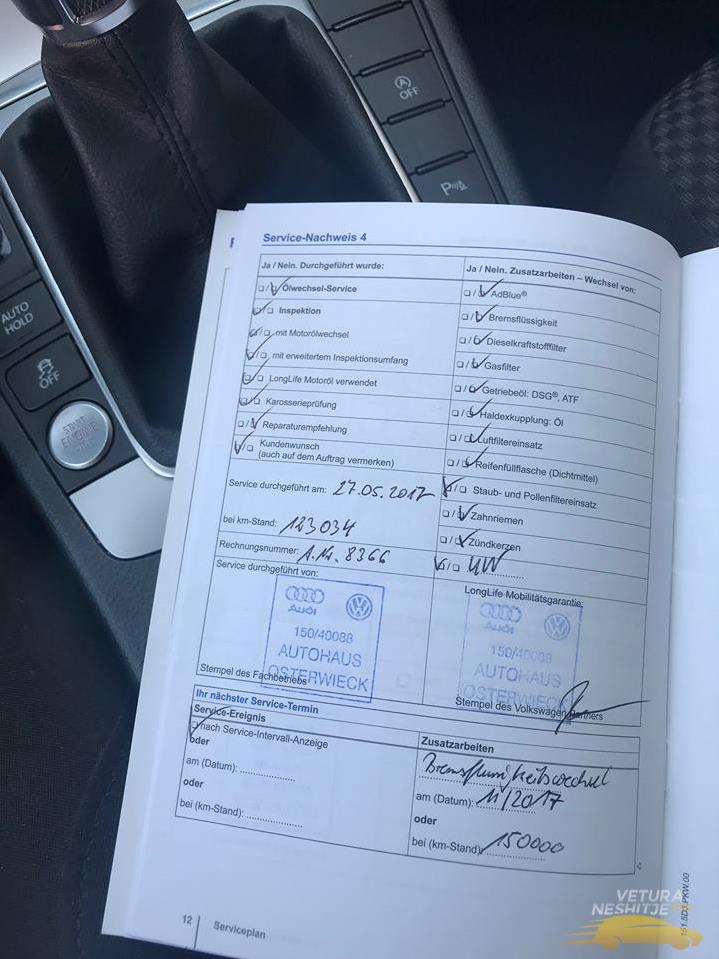 OFF
AUTO
HOLD
OFF
START
ENGINE
Service-Nachweis 4
Ja / Nein. Durchgeführt wurde:
Ölwechsel-Service
Inspektion
mit Motorölwechsel
mit erweitertem Inspektionsumfang
LongLife Motoröl verwendet
Karosserieprüfung
Reparaturempfehlung
Kundenwunsch
(auch auf dem Auftrag vermerken)
Service durchgeführt am: 27.05.2017
bei km-Stand: 123034
Rechnungsnummer: A.Nr. 8366
Service durchgeführt von:
Audi
150/40088
AUTOHAUS
OSTERWIECK
Stempel des Fachbetriebs
Ja / Nein. Zusatzarbeiten – Wechsel von:
AdBlue®
Bremsflüssigkeit
Dieselkraftstofffilter
Gasfilter
Getriebeöl: DSG®, ATF
Haldexkupplung: Öl
Luftfiltereinsatz
Reifenfüllflasche (Dichtmittel)
Staub- und Pollenfiltereinsatz
Zahnriemen
Zündkerzen
UW
LongLife Mobilitätsgarantie:
Audi
150/40088
AUTOHAUS
OSTERWIECK
Stempel des Volkswagen Partners
Ihr nächster Service-Termin
Service-Ereignis
nach Service-Intervall-Anzeige
oder
am (Datum):
oder
bei (km-Stand):
Zusatzarbeiten
Bremsflüssigkeitswechsel
am (Datum): 11/2017
oder
bei (km-Stand): 150000
12
Serviceplan
VETURA
NESHITJE